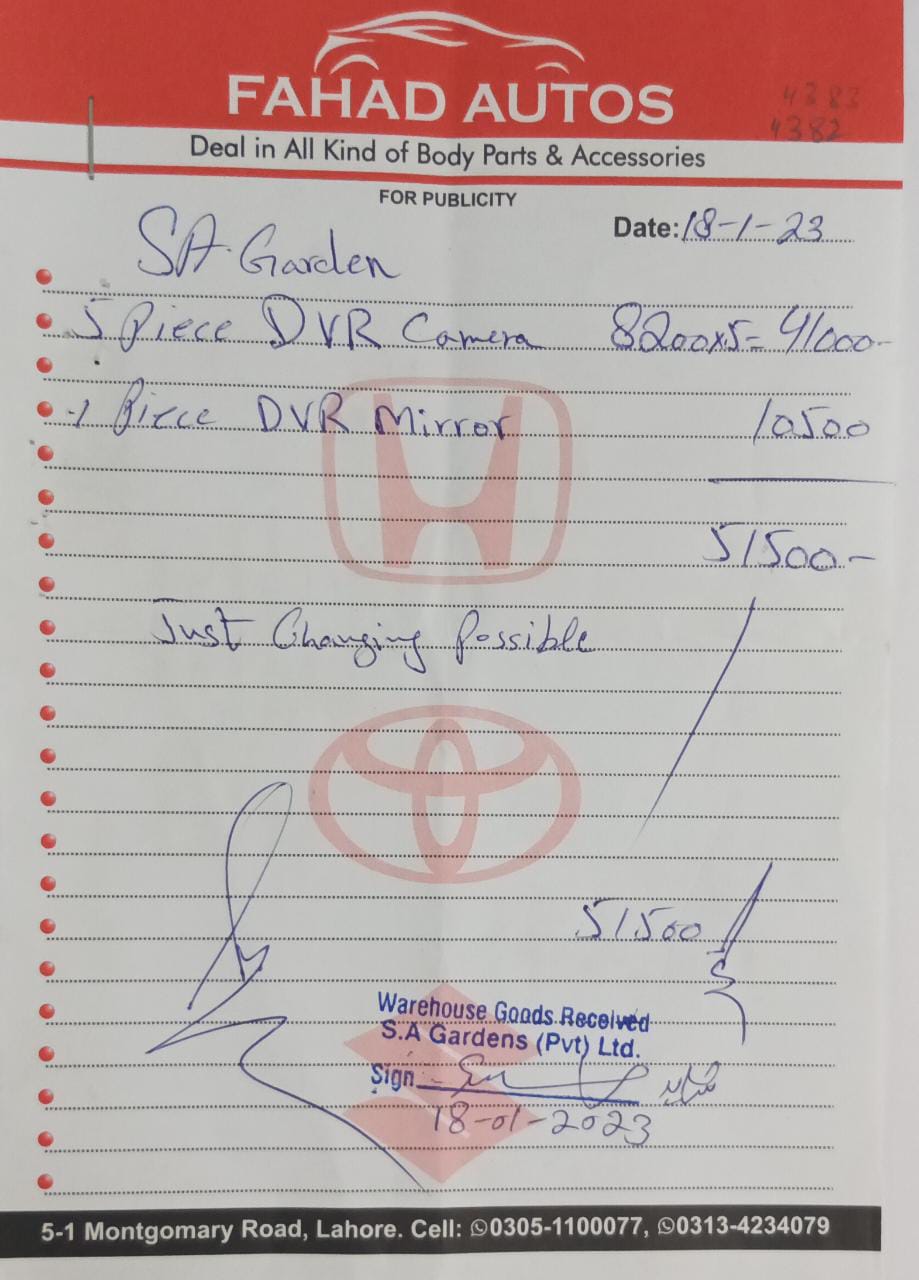 FAHAD AUTOS
4383
4382
Deal in All Kind of Body Parts & Accessories
FOR PUBLICITY
Date: 18-1-23
SA Garden
5 Piece DVR Camera 8200x5= 41000-
1 Piece DVR Mirror 10500
51500-
Just Changing Possible
51500
Warehouse Goods Received
S.A Gardens (Pvt) Ltd.
Sign
18-01-2023
5-1 Montgomary Road, Lahore. Cell: 0305-1100077, 0313-4234079